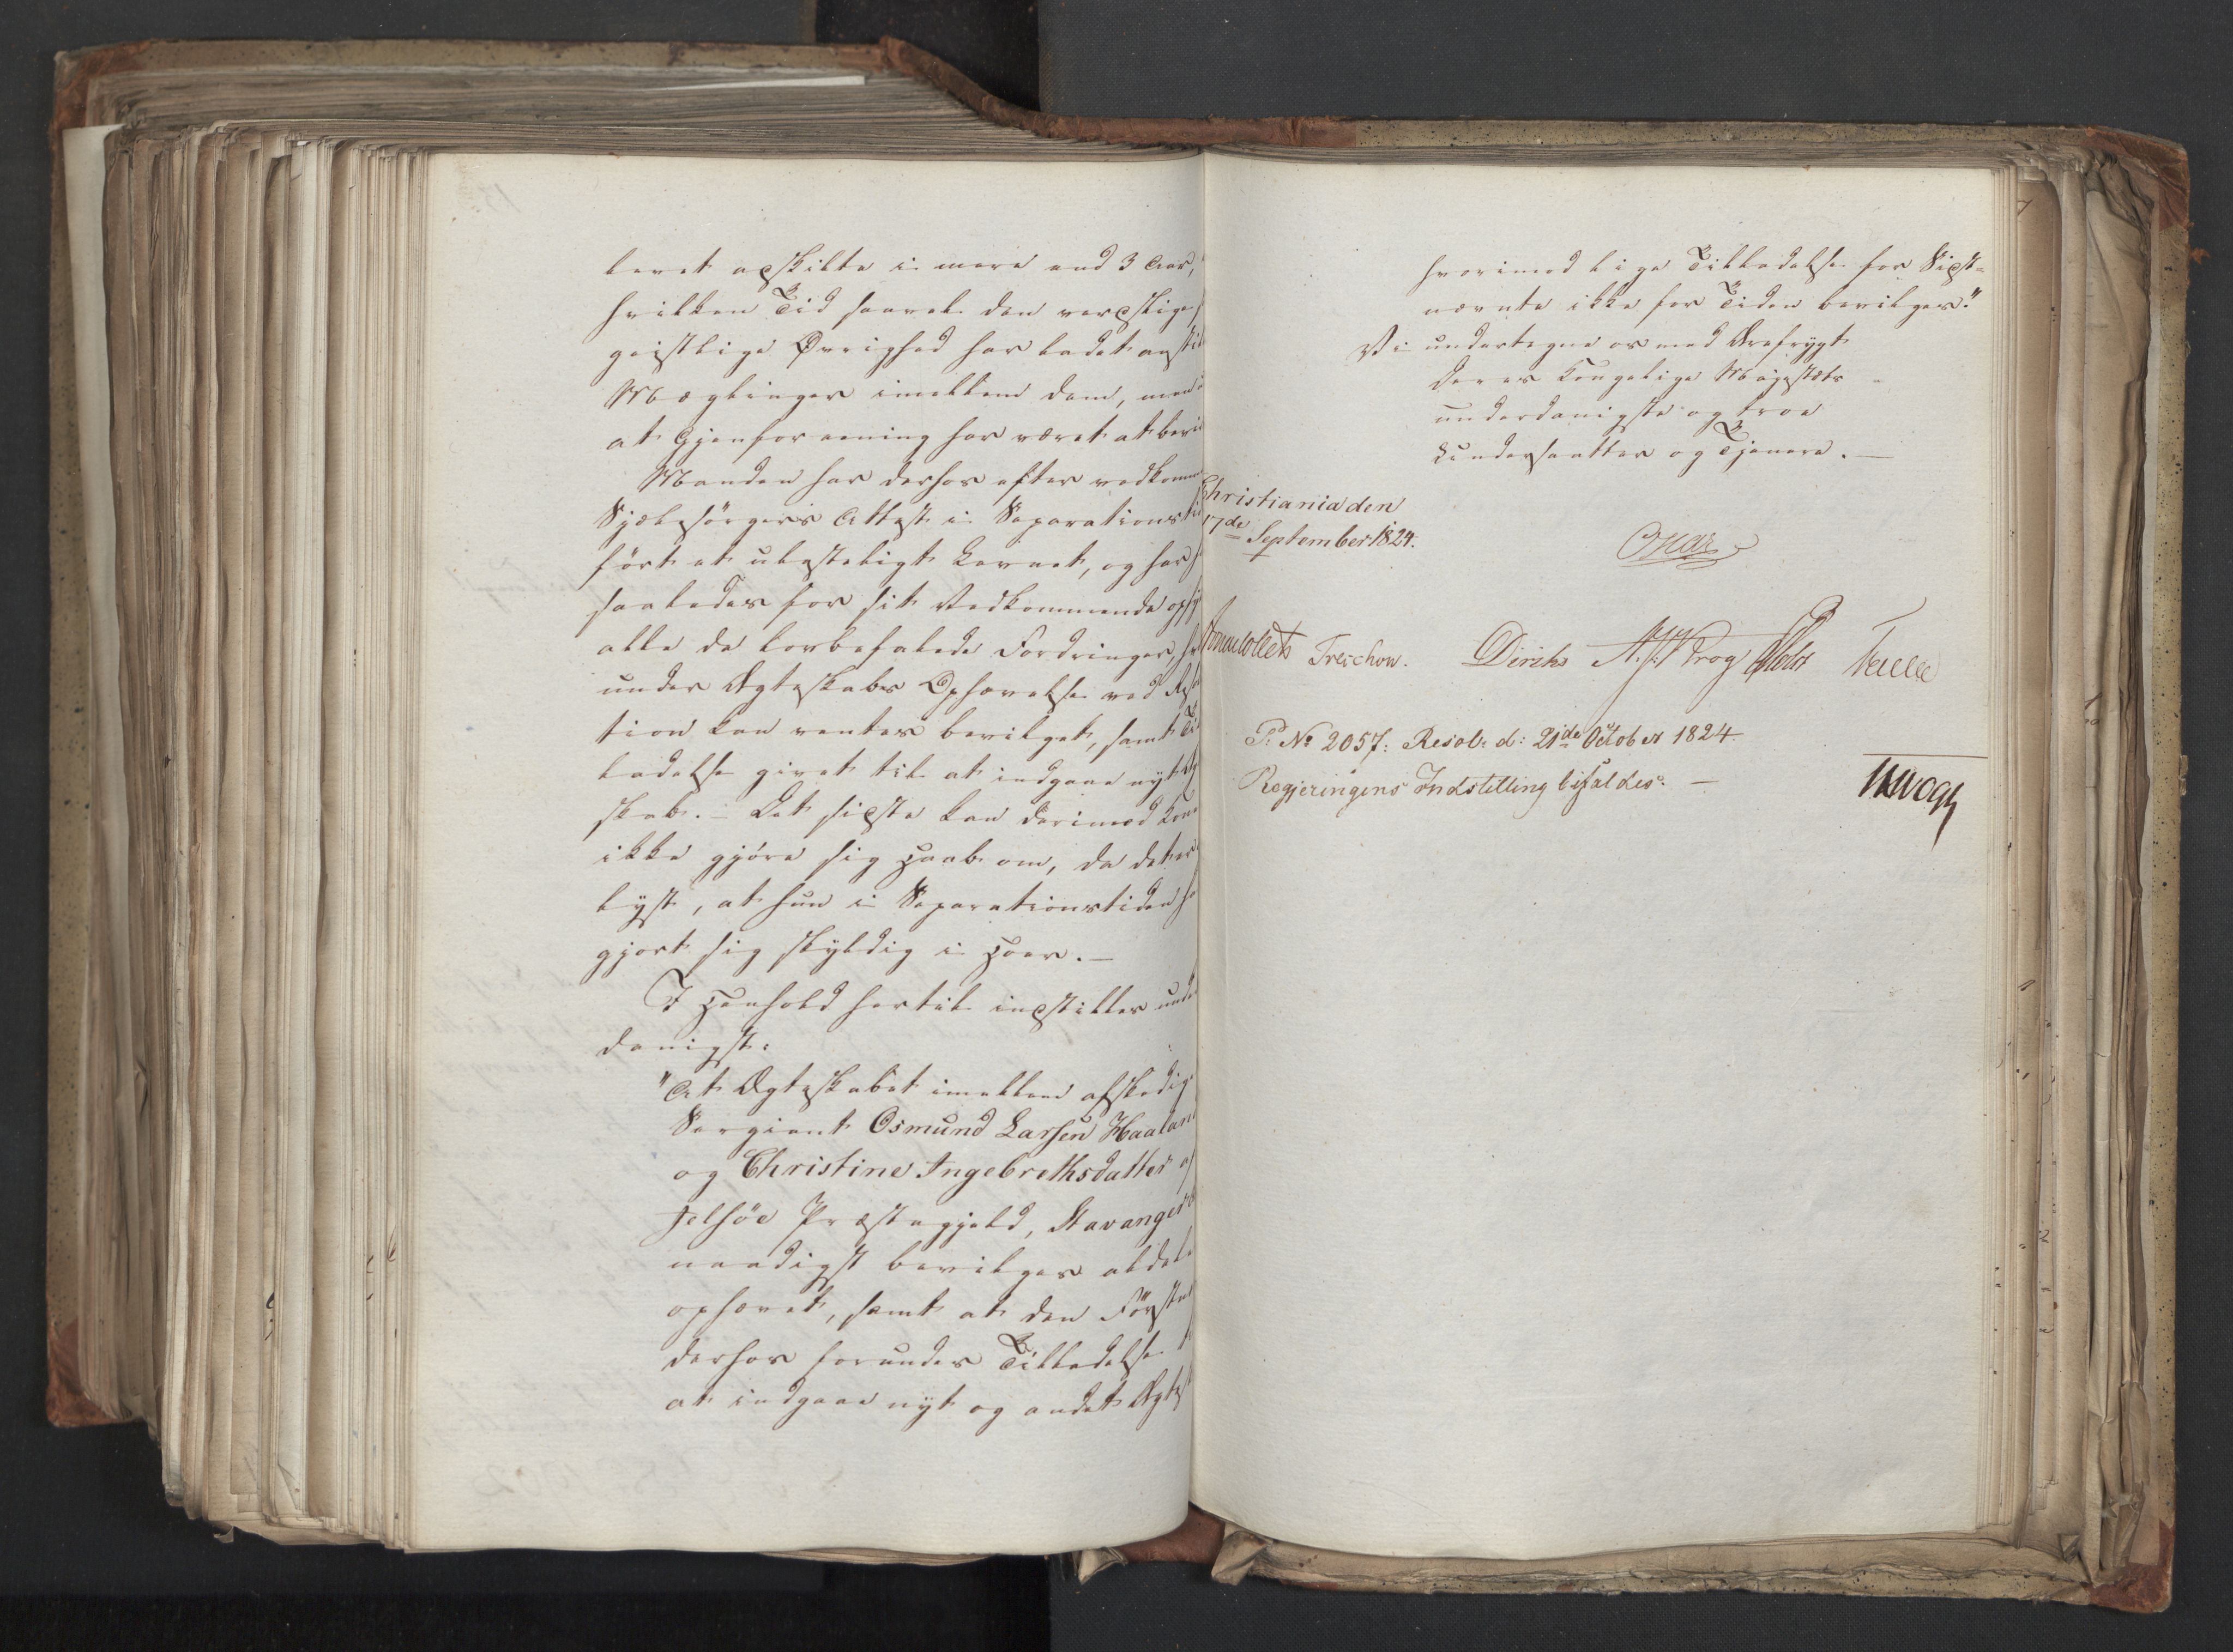 levet adskilte i mere end 3 Aar,
hvilken Tid saavel den verdslige
geistlige Øvrighed har ladet anstil
Mæglinger imellem dem, men
at Gjenforening har været at bevi
Manden har derhos efter vedkomm
Sjælesörgers Attest i Separationsti
fört et ulasteligt Levnet, og har
saaledes for sit Vedkommende opfy
alle de lovbefalede Fordringer, hv
under Ægteskabs Ophævelse ved Reso
tion kan ventes bevilget, samt Til
ladelse givet til at indgaae nyt Æg
skab. – Det sidste kan derimod Kon
ikke gjöre sig Haab om, da det er
lyst, at hun i Separationstiden ha
gjort sig skyldig i Hoer. –
I Henhold hertil indstilles unde
danigst:
"At Ægteskabet imellem afskedig
Sergiant Osmund Larsen Haalan
og Christine Ingebrethsdatter af
Jelsöe Præstegjeld, Stavanger
naadigst bevilges aldel
ophævet, samt at den Förstn
derhos forundes Tilladelse t
at indgaae nyt og andet Ægtes
hvorimod lige Tilladelse for Sidst-
nævnte ikke for Tiden bevilges."
Vi undertegne os med Ærefrygt
Deres Kongelige Majestæts
underdanigste og troe
Undersaatter og Tjenere. –
Christiania den
17de September 1824.
Oscar
Jonas Collett Treschow. Diriks A: J: Krog Holst Fasting
P: No 2057: Resol: d: 21de October 1824.
Regjeringens Indstilling bifaldes. –